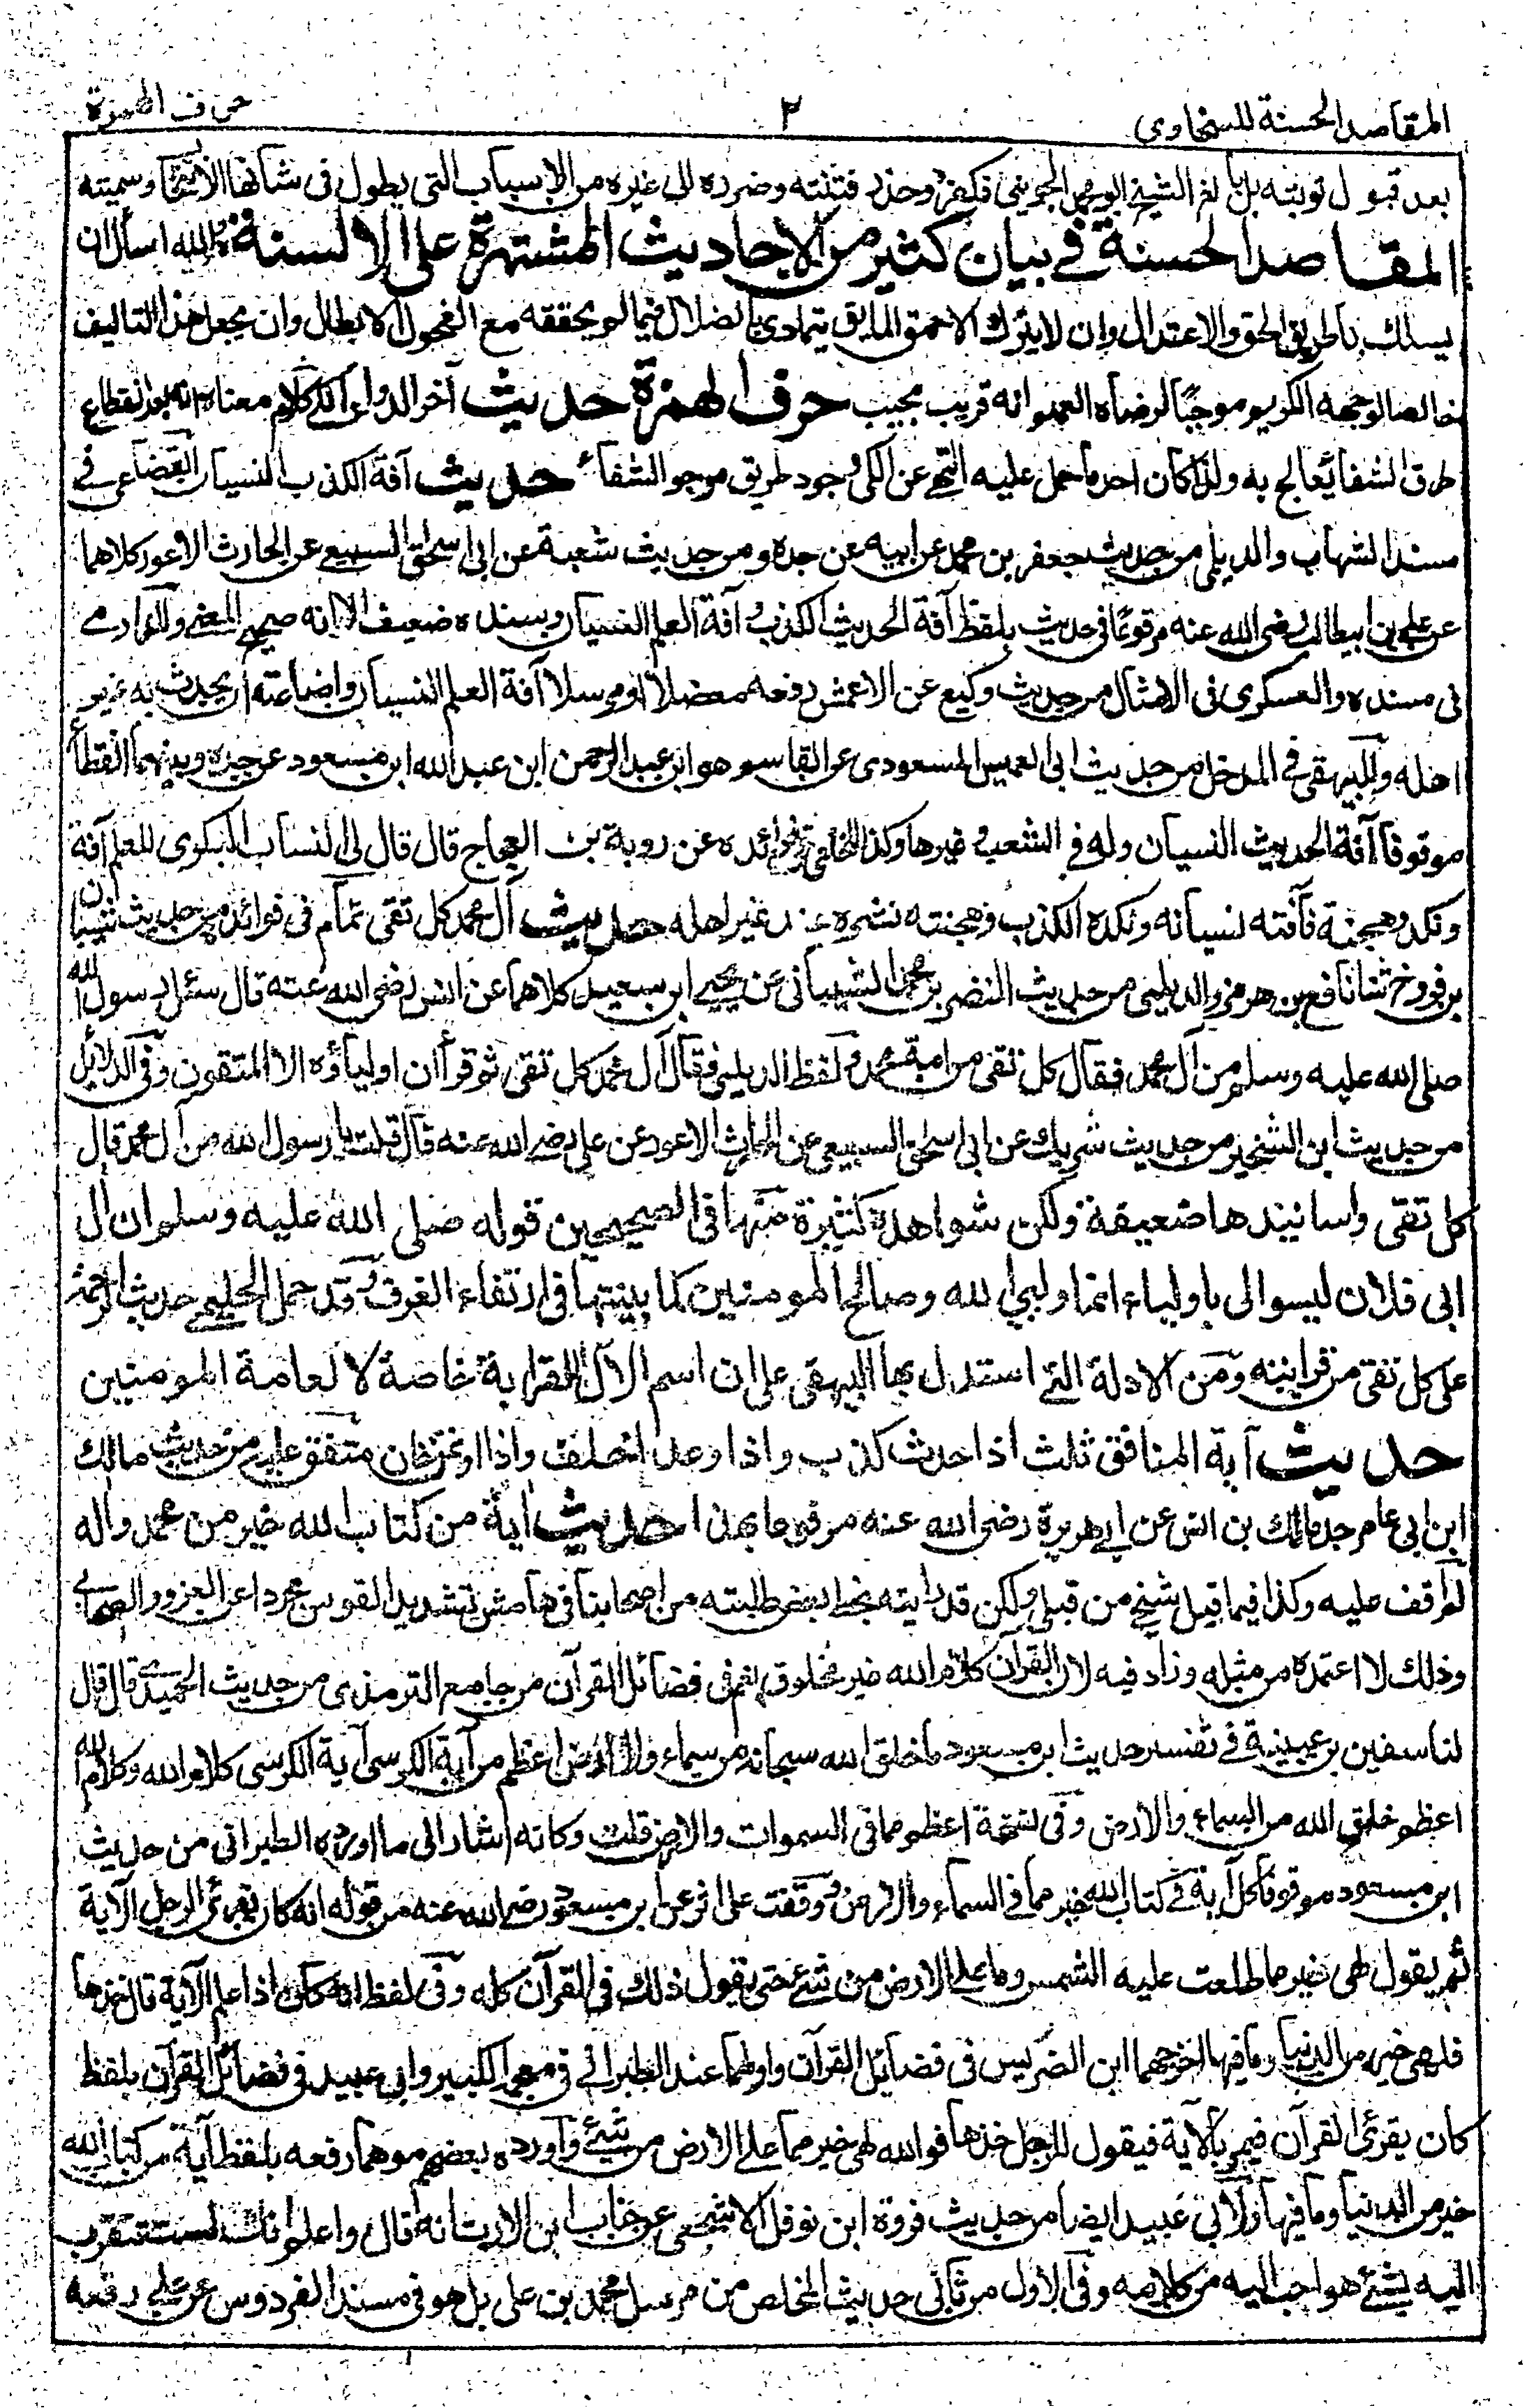 المقاصد الحسنة للسخاوى ٢ حرف الهمزة
بعد قبول توبته بل بالغ الشيخ ابو محمد الجوينى فكفره وحذر فتنته وضرره الى غيره من الاسباب التى يطول فى شانها الانتقا وسميته
المقاصد الحسنة فى بيان كثير من الاحاديث المشتهرة على الالسنة والله اسأل ان
يسلك بنا طريق الحق والاعتدال وان لا يترك الاحمق المايق يتمادى بالضلال فيما لم يحققه مع الفحول الابطال وان يجعل هذا التاليف
خالصا لوجهه الكريم موجبًا لرضاه العميم انه قريب مجيب حرف الهمزة حديث آخر الدواء الكى كلام معناه انه بعد انقطاع
طرق الشفا يعالج به ولذا كان احد ما حمل عليه النهى عن الكى وجود طريق مرجو الشفاء حديث آفة الكذب النسيان القضاعى فى
مسند الشهاب والديلمى من حديث جعفر بن محمد عن ابيه عن جده ومن حديث شعبة عن ابى اسحق السبيعى عن الحارث الاعور كلاهما
عن على بن ابيطالب رضى الله عنه مرفوعًا فى حديث بلفظ آفة الحديث الكذب وآفة العلم النسيان وسنده ضعيف الا انه صحيح المعنى وللدارمى
فى مسنده والعسكرى فى الامثال من حديث وكيع عن الاعمش رفعه معضلا او مرسلا آفة العلم النسيان واضاعته ان يحدث به غير
اهله وللبيهقى فى المدخل من حديث ابى العميس المسعودى عن القاسم هو ابن عبد الرحمن ابن عبد الله ابن مسعود عن جده وبينهما انقطاع
موقوفا آفة الحديث النسيان وله فى الشعب وغيرها وكذا للخلعى فى فوائده عن روبة بن العجاج قال قال لى النساب البكرى للعلم آفة
ونكد وهجنة فآفته نسيانه ونكده الكذب وهجنته نشره عند غير اهله حديث آل محمد كل تقى تمام فى فوائده من حديث شيبان
بن فروخ ثنا نافع بن هرمز والديلمى من حديث النضر بن محمد الشيبانى عن يحيى ابن سعيد كلاهما عن انس رضى الله عنه قال سئل رسول الله
صلى الله عليه وسلم من آل محمد فقال كل تقى من امة محمد ولفظ الديلمى فقال آل محمد كل تقى ثم قرأ ان اولياؤه الا المتقون وفى الدلائل
من حديث ابن الشخير من حديث شريك عن ابى اسحق السبيعى عن الحارث الاعور عن على رضى الله عنه قال قلت يا رسول الله من آل محمد قال
كل تقى واسانيدها ضعيفة ولكن شواهده كثيرة منها فى الصحيحين قوله صلى الله عليه وسلم ان آل
ابى فلان ليسوا لى باولياء انما وليى الله وصالح المومنين كما بينتها فى ارتقاء الغرف وقد حمل الحليمى حديث الترجمة
على كل تقى من قرابته ومن الادلة التى استدل بها البيهقى على ان اسم الآل للقرابة خاصة لا لعامة المومنين
حديث آية المنافق ثلث اذا حدث كذب واذا وعد اخلف واذا اوتمن خان متفق عليه من حديث مالك
ابن ابى عامر جد مالك بن انس عن ابى هريرة رضى الله عنه مرفوعا بهذا حديث آية من كتاب الله خير من محمد وآله
لم اقف عليه وكذا فيما قيل شيخى من قبلى ولكن قد رايته بخط بعض طلبته من اصحابنا فى هامش تشديد القوس مجردا عن العزو والصحابى
وذلك لا اعتمده من مثله وزاد فيه لان القرآن كلام الله غير مخلوق نعم فى فضائل القرآن من جامع الترمذى من حديث الحميدى قال قال
لنا سفين بن عيينة فى تفسير حديث ابن مسعود ما خلق الله سبحانه من سماء ولا ارض اعظم من آية الكرسى آية الكرسى كلام الله وكلام الله
اعظم خلق الله من السماء والارض وفى نسخة اعظم مما فى السموات والارض قلت وكانه اشار الى ما اورده الطبرانى من حديث
ابن مسعود موقوفا كل آية فى كتاب الله خير مما فى السماء والارض ووقفت على اثر عن ابن مسعود رضى الله عنه من قوله انه كان يقرئ الرجل الآية
ثم يقول لهى خير مما طلعت عليه الشمس وما على الارض من شئ حتى يقول ذلك فى القرآن كله وفى لفظ انه كان اذا علم الآية قال خذها
فلهى خير من الدنيا وما فيها اخرجهما ابن الضريس فى فضائل القرآن واولهما عند الطبرانى فى معجمه الكبير وابى عبيد فى فضائل القرآن بلفظ
كان يقرئ القرآن فيمر بالآية فيقول للرجل خذها فوالله لهى خير مما على الارض من شئ واورده بعضهم موهما رفعه بلفظ آية من كتاب الله
خير من الدنيا وما فيها ولابى عبيد ايضا من حديث فروة ابن نوفل الاشجعى عن خباب ابن الارت انه قال واعلم انك لست تتقرب
اليه بشئ هو احب اليه من كلامه وفى الاول من ثانى حديث المخلص من مرسل محمد بن على بل هو فى مسند الفردوس عن على رفعه